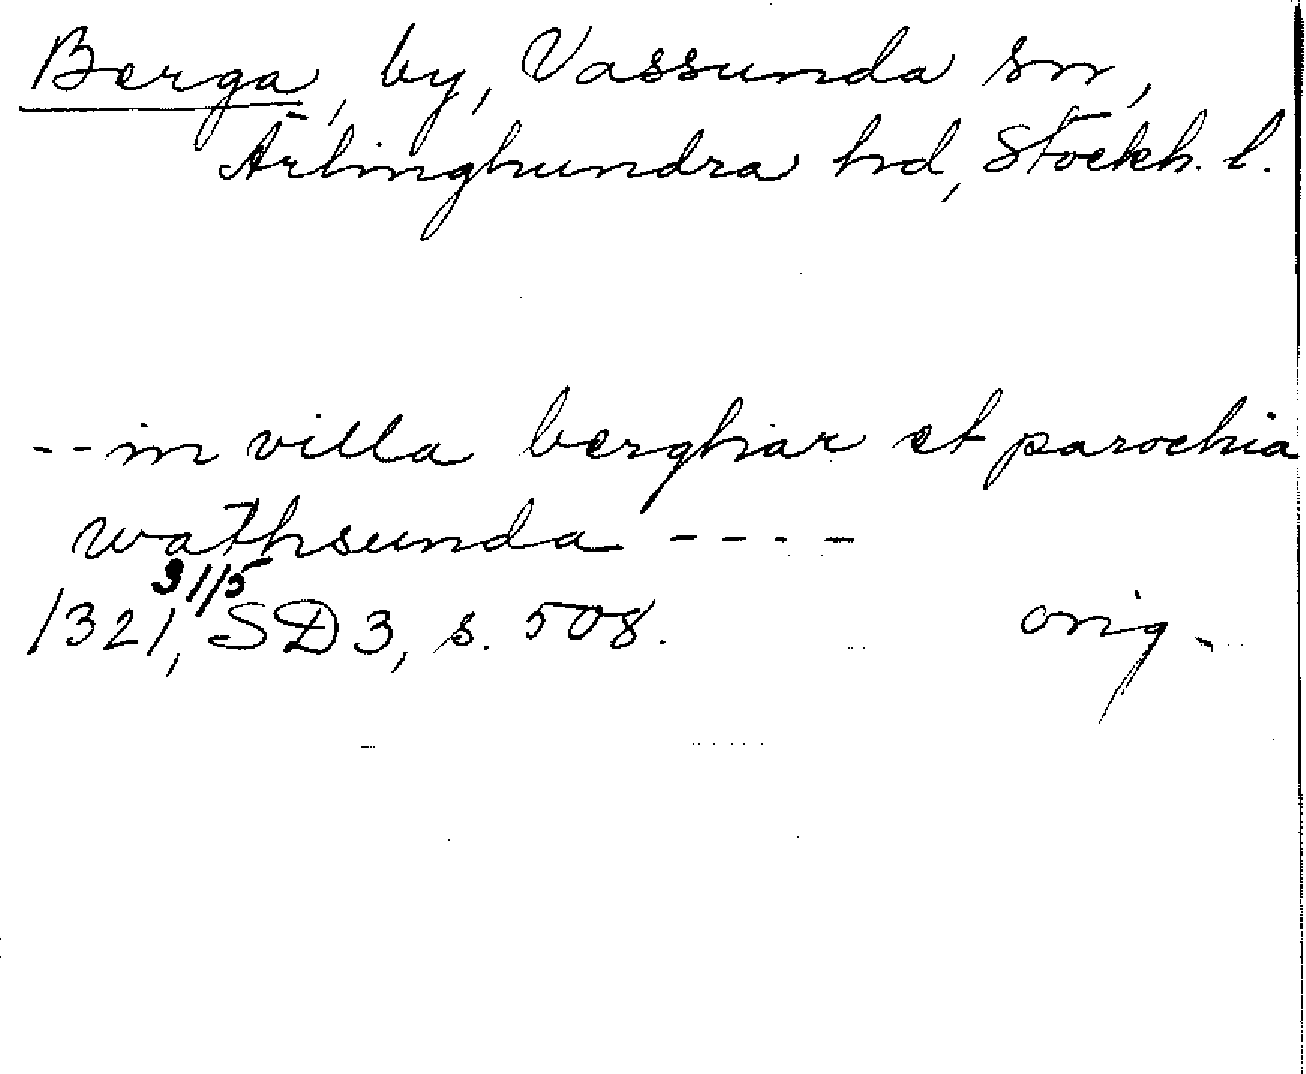 Berga, by, Vassunda sn,
Ärlinghundra hd, Stockh. l.
--in villa berghar et parochia
wathsunda ----
31/5
1321, SD 3, s. 508. orig.